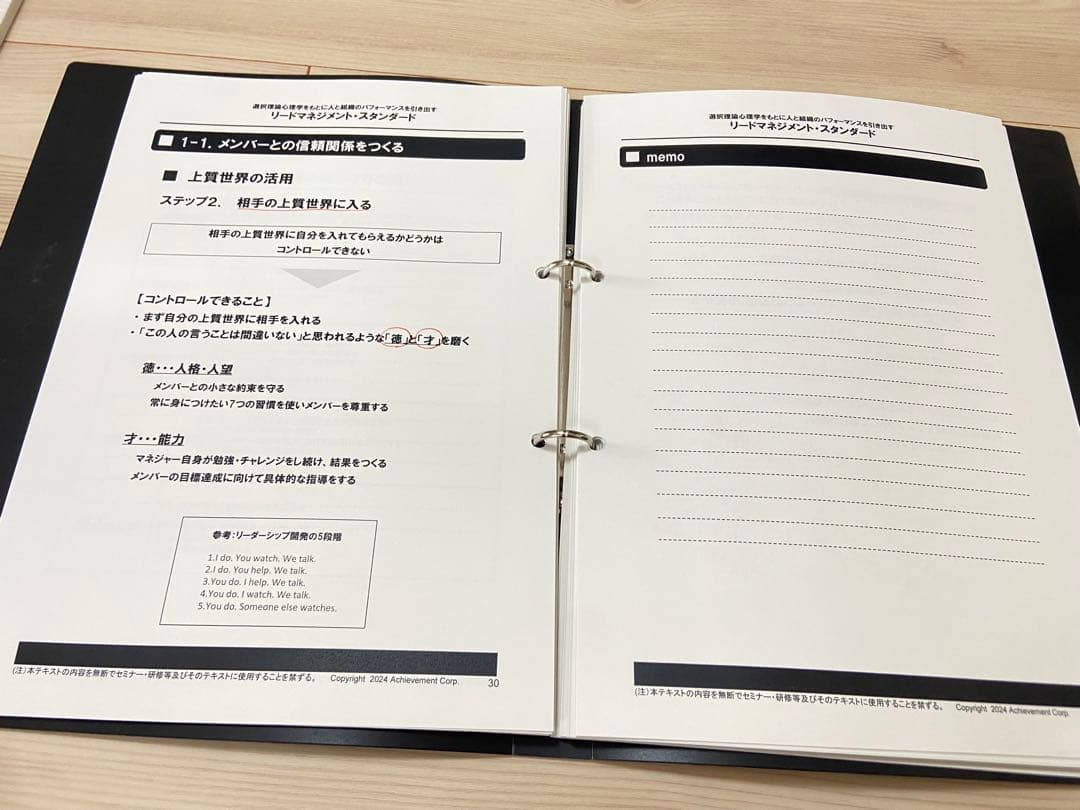 選択理論心理学をもとに人と組織のパフォーマンスを引き出す
リードマネジメント・スタンダード
1-1. メンバーとの信頼関係をつくる
■ 上質世界の活用
ステップ2. 相手の上質世界に入る
相手の上質世界に自分を入れてもらえるかどうかは
コントロールできない
【コントロールできること】
・まず自分の上質世界に相手を入れる
・「この人の言うことは間違いない」と思われるような「徳」と「才」を磨く
徳・・・人格・人望
メンバーとの小さな約束を守る
常に身につけたい7つの習慣を使いメンバーを尊重する
才・・・能力
マネジャー自身が勉強・チャレンジをし続け、結果をつくる
メンバーの目標達成に向けて具体的な指導をする
参考:リーダーシップ開発の5段階
1.I do. You watch. We talk.
2.I do. You help. We talk.
3.You do. I help. We talk.
4.You do. I watch. We talk.
5.You do. Someone else watches.
(注)本テキストの内容を無断でセミナー・研修等及びそのテキストに使用することを禁ずる。 Copyright 2024 Achievement Corp.
30
選択理論心理学をもとに人と組織のパフォーマンスを引き出す
リードマネジメント・スタンダード
memo
(注)本テキストの内容を無断でセミナー・研修等及びそのテキストに使用することを禁ずる。 Copyright 2024 Achievement Corp.